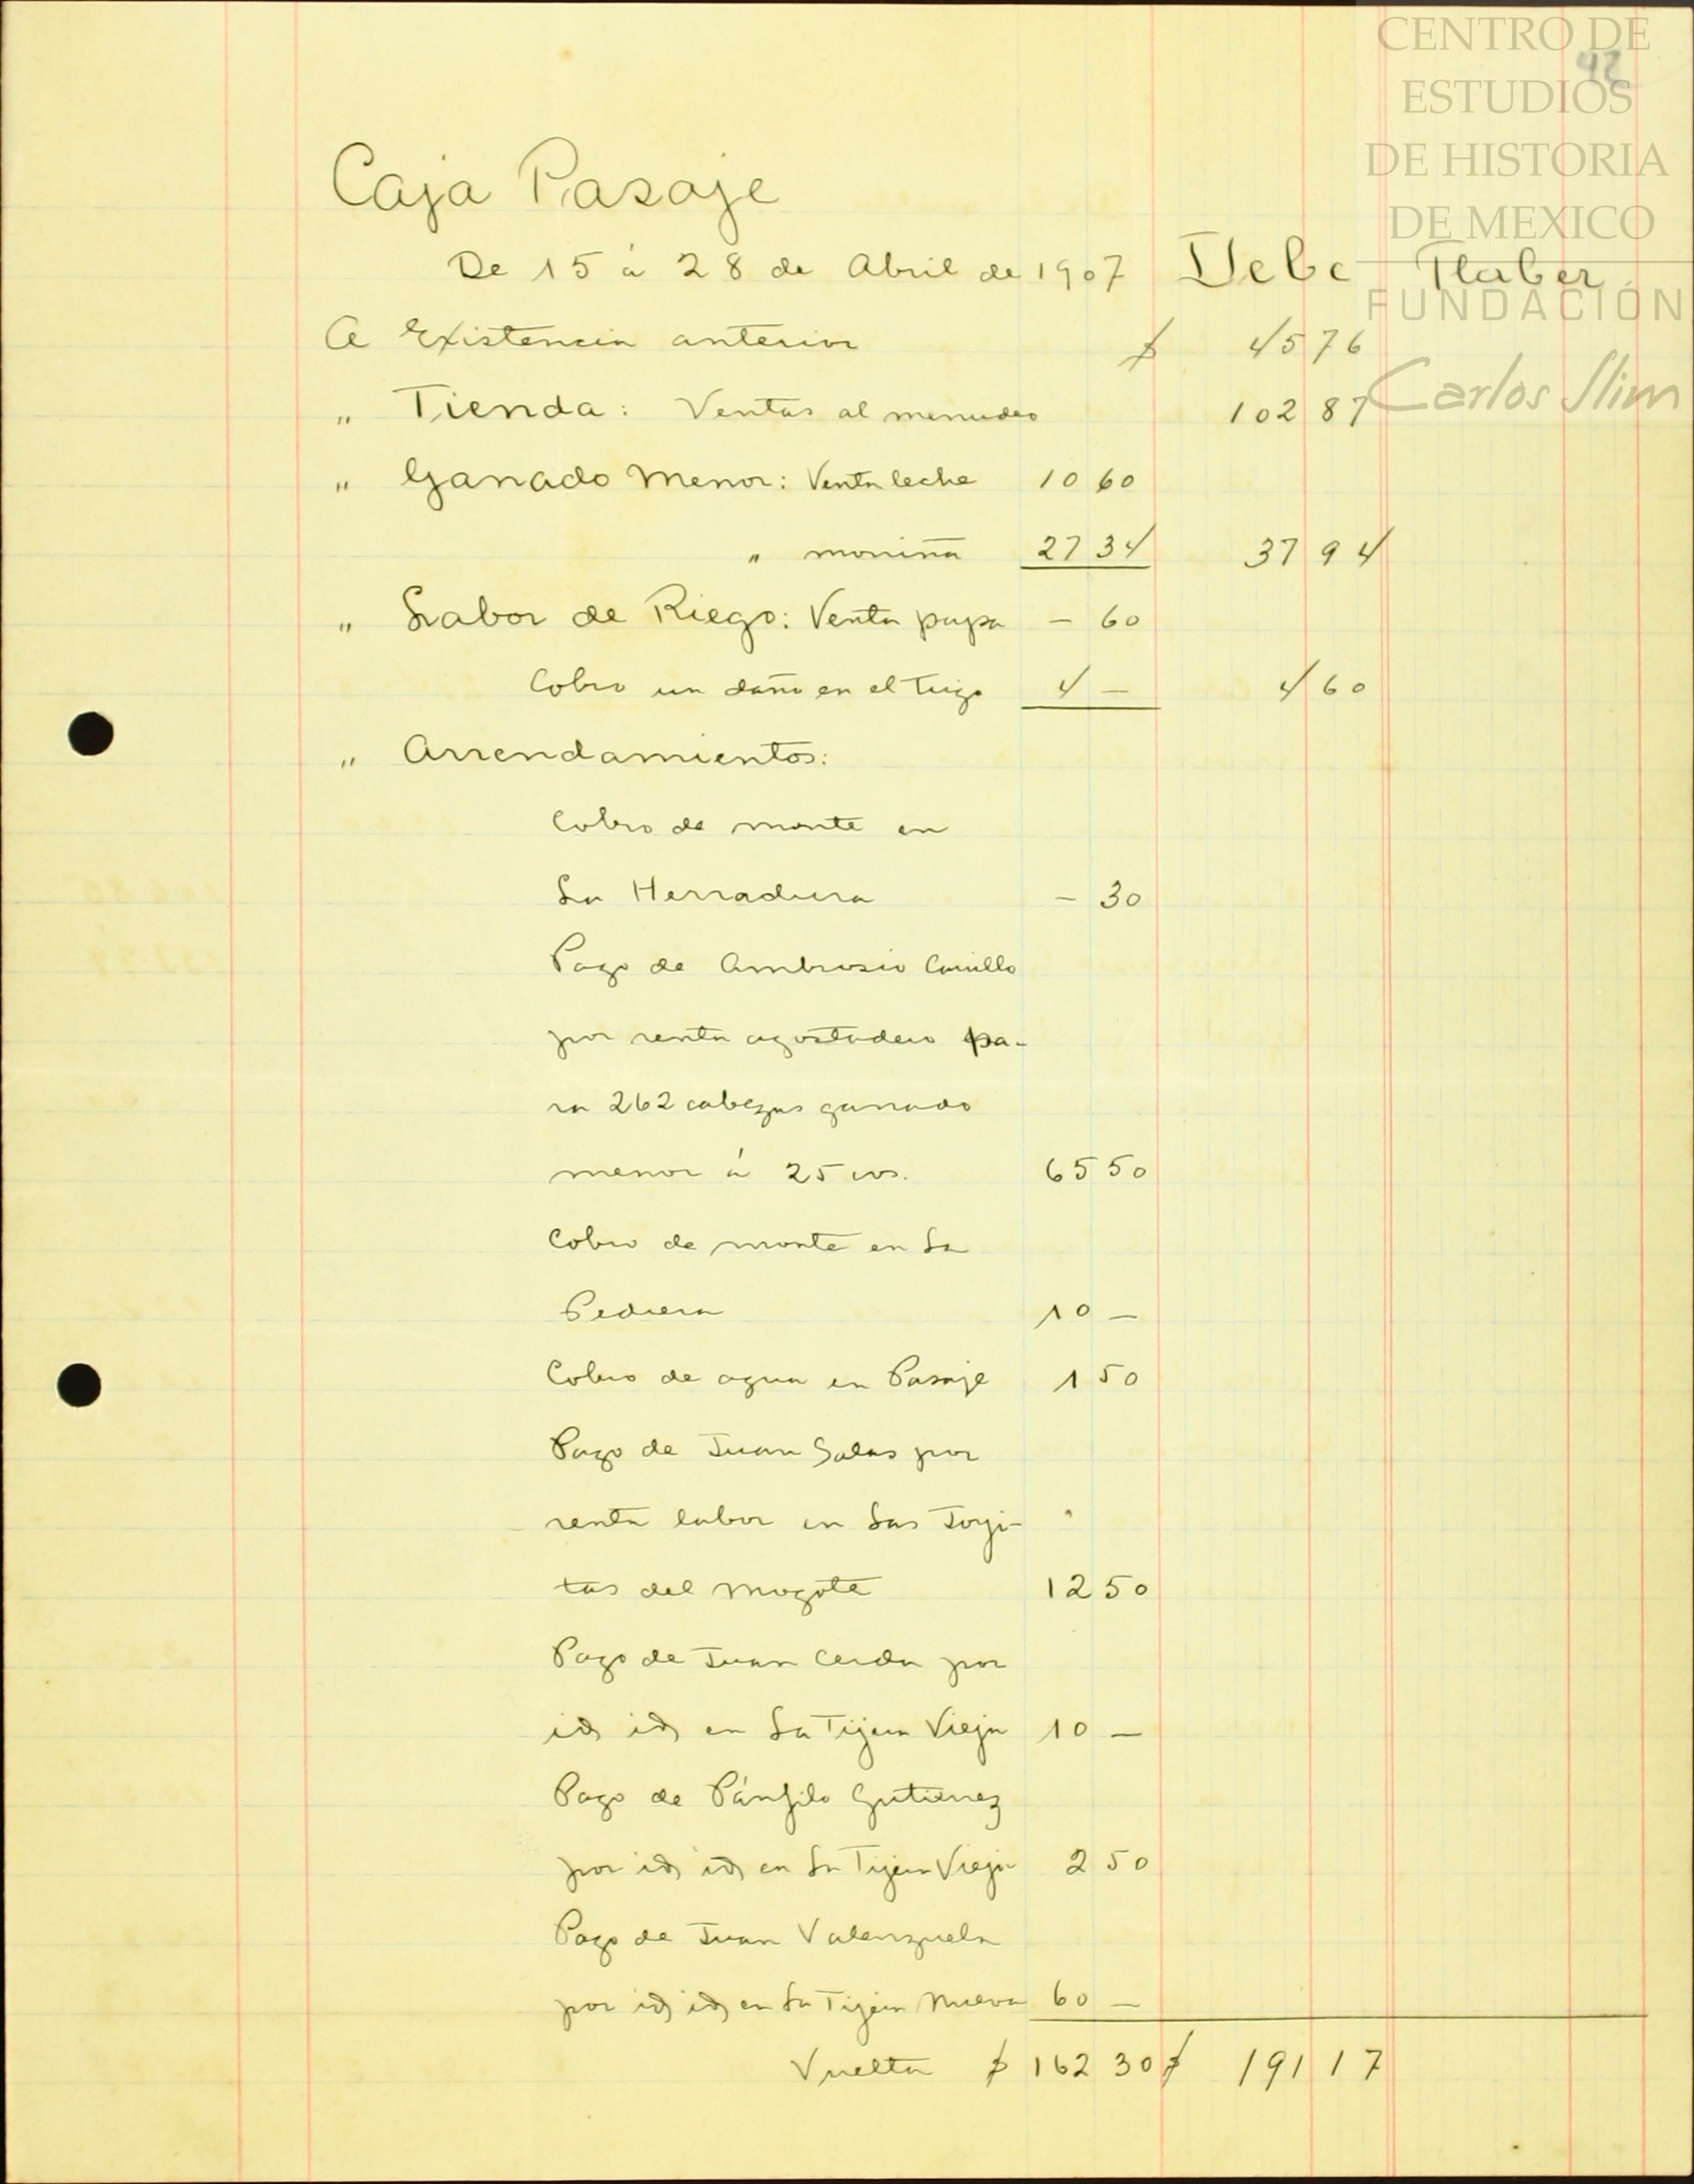 CENTRO DE
ESTUDIOS
DE HISTORIA
DE MEXICO
FUNDACIÓN
Carlos Slim
42
Caja Pasaje
De 15 á 28 de Abril de 1907 Debe Haber
A Existencia anterior $ 45 76
" Tienda: Ventas al menudeo 102 87
" Ganado Menor: Venta leche 10 60
" moriña 27 34 37 94
" Labor de Riego: Venta papa - 60
Cobro un daño en el trigo 4 - 4 60
" Arrendamientos:
Cobro de monte en
La Herradura - 30
Pago de Ambrosio Carrillo
por renta agostadero pa-
ra 262 cabezas ganado
menor á 25 cvs. 65 50
Cobro de monte en La
Pedrera 10 -
Cobro de agua en Pasaje 1 50
Pago de Juan Salas por
renta labor en Las Joyi-
tas del Mogote 12 50
Pago de Juan Cerda por
id id en La Tijera Vieja 10 -
Pago de Pánfilo Gutierrez
por id id en La Tijera Vieja 2 50
Pago de Juan Valenzuela
por id id en La Tijera Nueva 60 -
Vuelta $ 162 30 $ 191 17